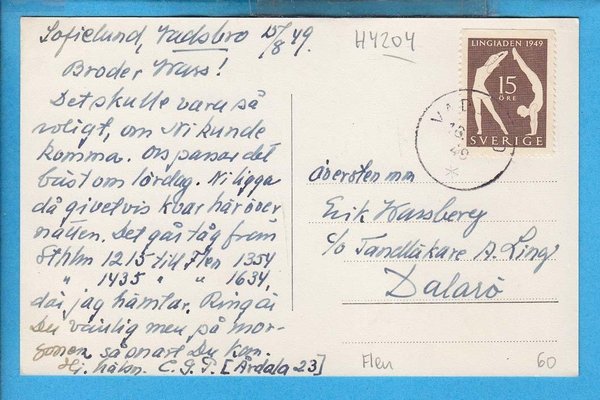 Sofielund, Vadsbro 15/8 49.
Broder Wass!
Det skulle vara så
roligt, om Ni kunde
komma. Oss passar det
bäst om lördag. Ni ligga
då givetvis kvar här över
natten. Det går tåg från
Sthlm 1215 till Flen 1354
" 1435 " " 1634,
där jag hämtar. Ring är
Du vänlig men på mor-
gonen så snart Du kom.
Hj. häls. C.G.P. [Årdala 23]
H4204
LINGIADEN 1949
15
ÖRE
SVERIGE
VAD
49
Översten mm
Erik Wassberg
c/o Tandläkare A. Ling
Dalarö
Flen
60